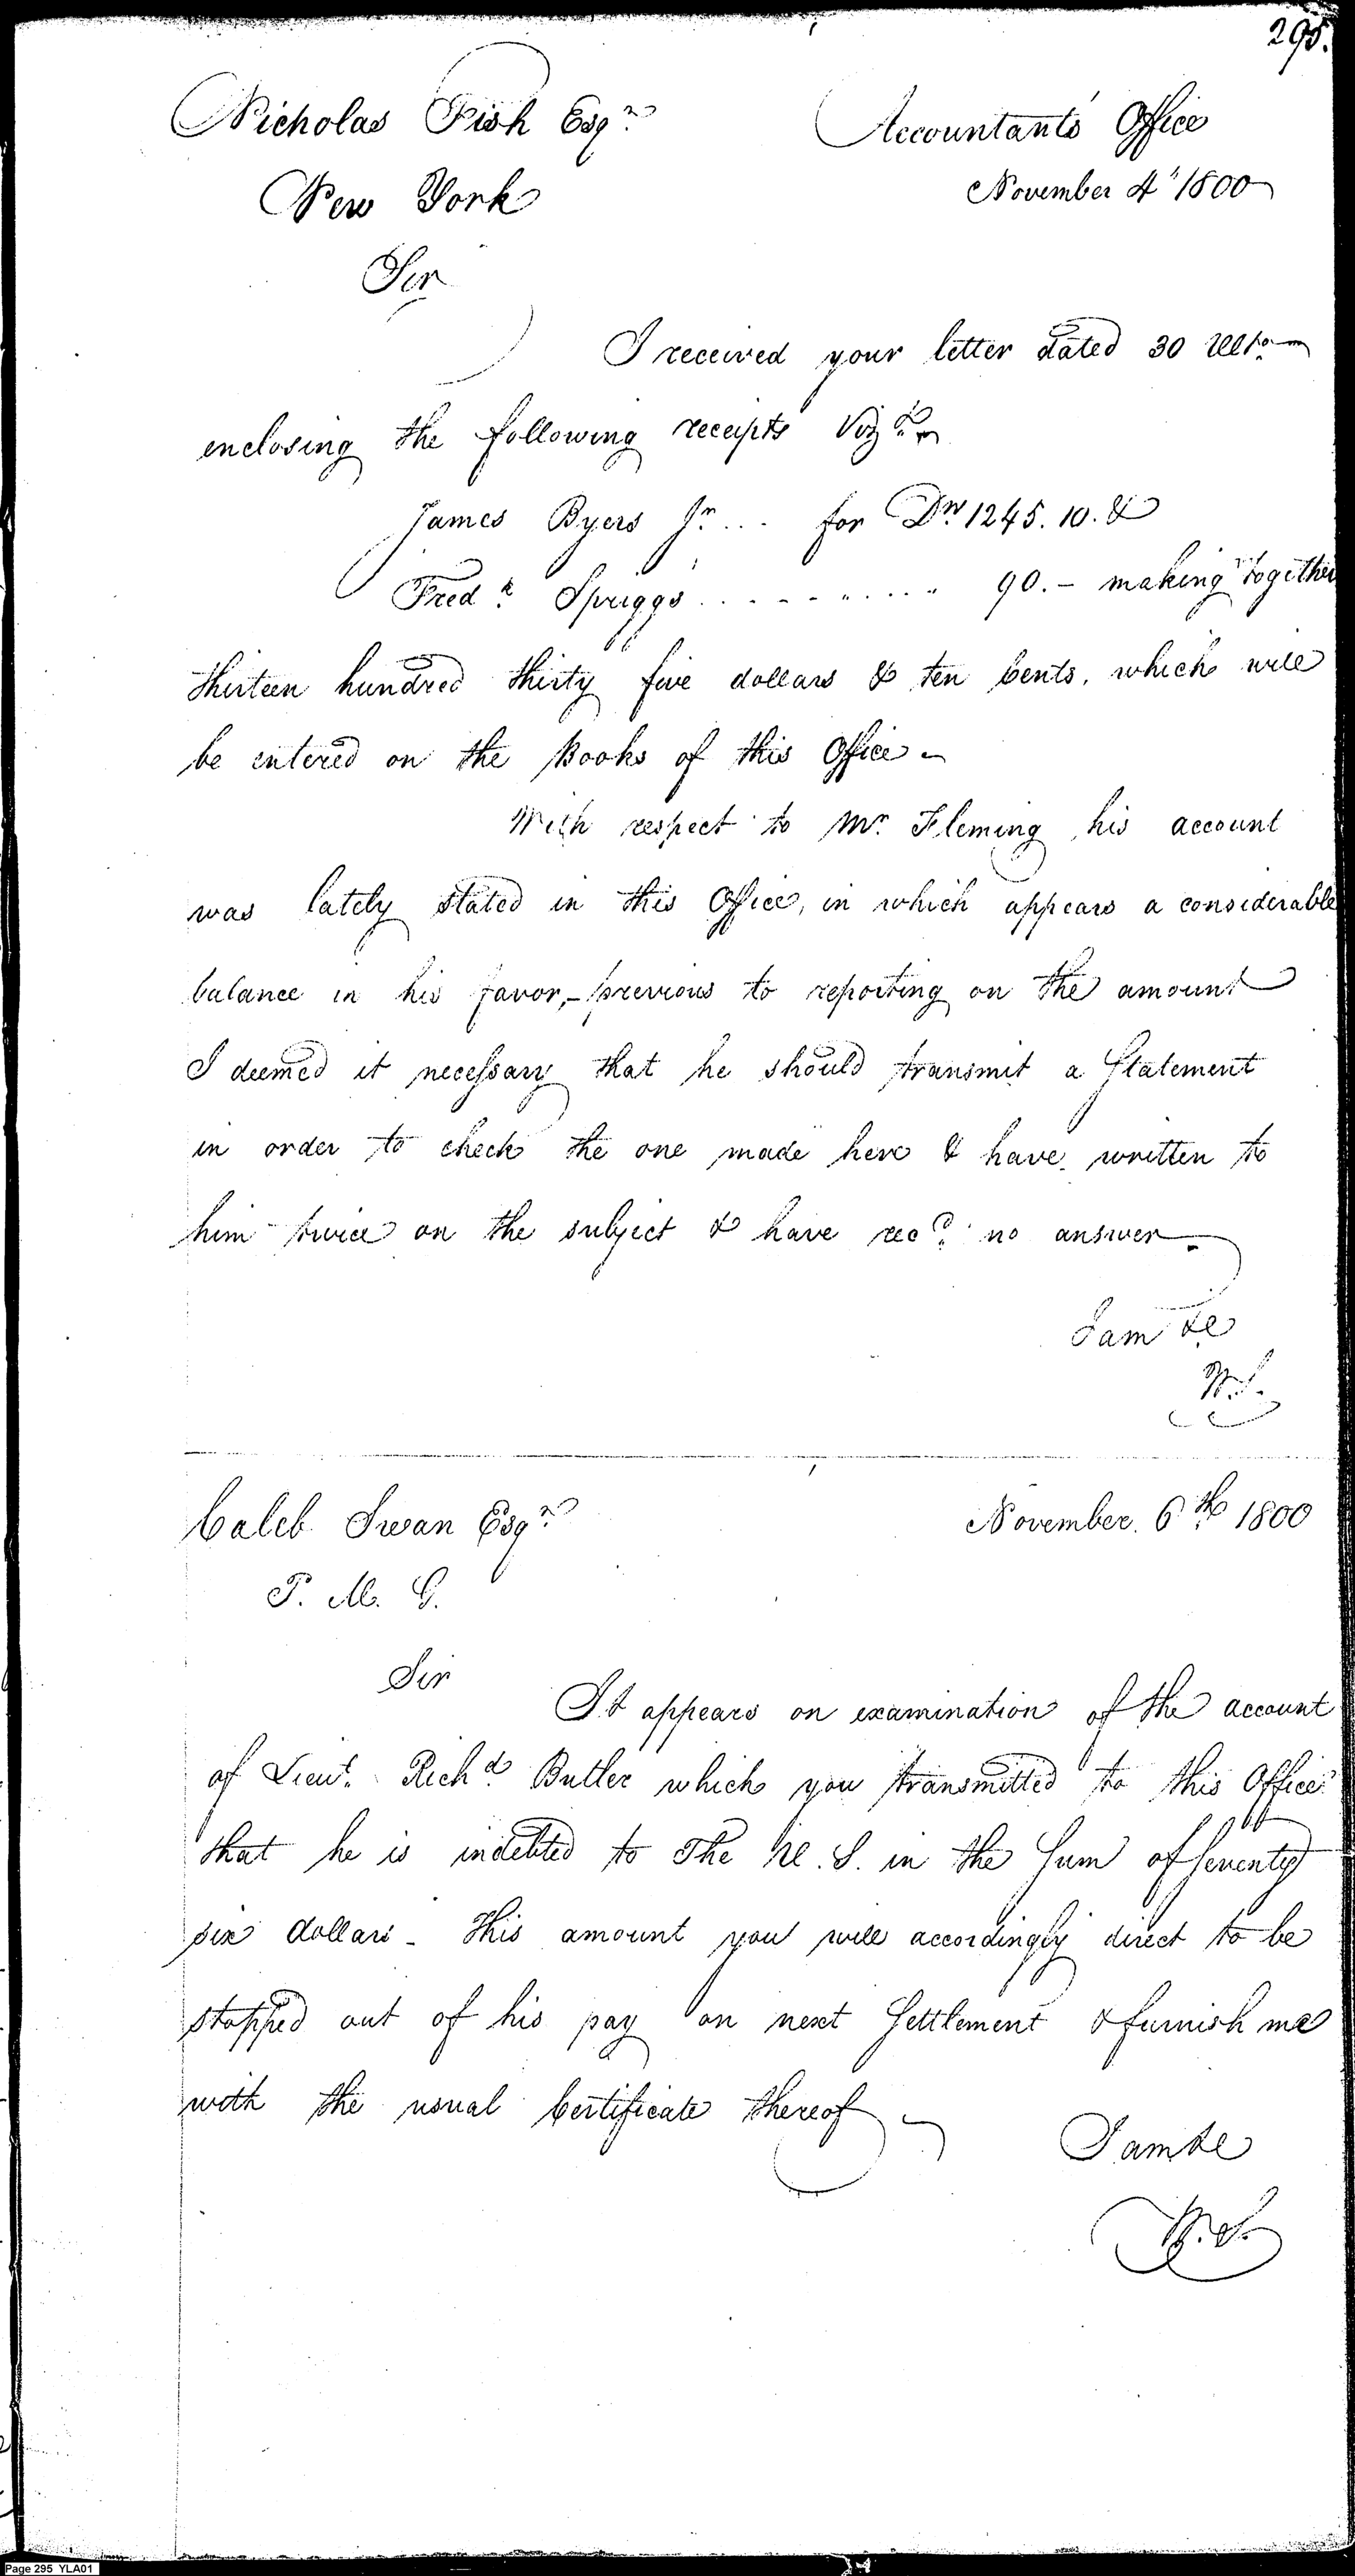 295.
Nicholas Fish Esqr. Accountants Office
New York November 4th 1800
Sir
I received your letter dated 30 Ulto.
enclosing the following receipts Vizt.
James Byers Jr... for Drs. 1245.10. &
Fredk. Spriggs .......... 90.- making together
thirteen hundred thirty five dollars & ten Cents, which will
be entered on the Books of this Office -
With respect to Mr. Fleming, his account
was lately stated in this Office, in which appears a considerable
balance in his favor, - previous to reporting on the amount
I deemed it necessary that he should transmit a Statement
in order to check the one made here & have written to
him twice on the subject & have recd. no answer -
I am &c
W.S.
Caleb Swan Esqr. November 6th 1800
P. M. G.
Sir
It appears on examination of the account
of Lieut. Richd. Butler which you transmitted to this Office
that he is indebted to the U.S. in the Sum of Seventy
six dollars - This amount you will accordingly direct to be
stopped out of his pay on next Settlement & furnish me
with the usual Certificate thereof
I am &c
W.S.
Page 295 YLA01